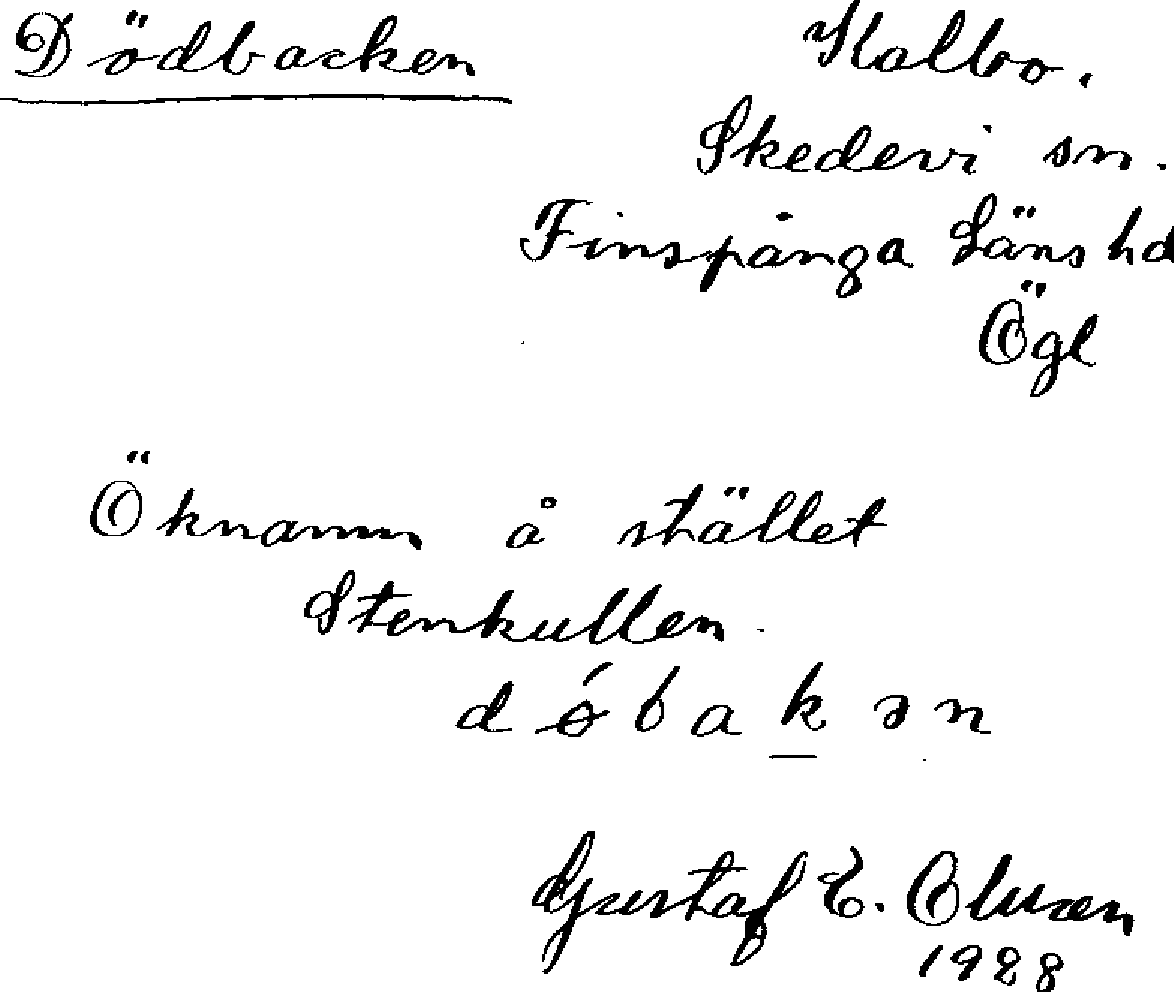 Dödbacken
Kalbo.
Skedevi sn.
Finspånga Läns hd
Ögl
Öknamn å stället
Stenkullen.
dǿbakən
Gustaf E. Olsson
1928